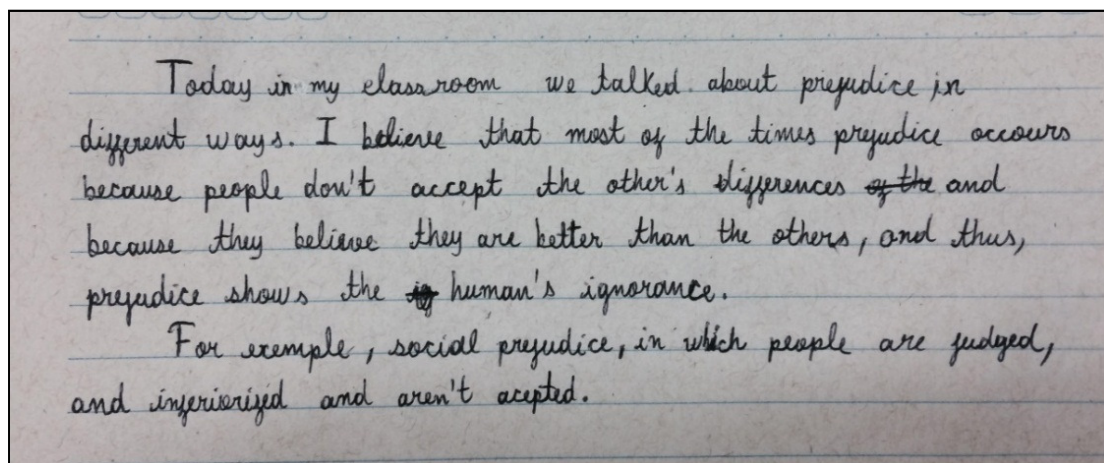 Today in my classroom we talked about prejudice in
different ways. I believe that most of the times prejudice occours
because people don't accept the other's differences of the and
because they believe they are better than the others, and thus,
prejudice shows the human's ignorance.
For exemple, social prejudice, in which people are judged,
and inferiorized and aren't acepted.